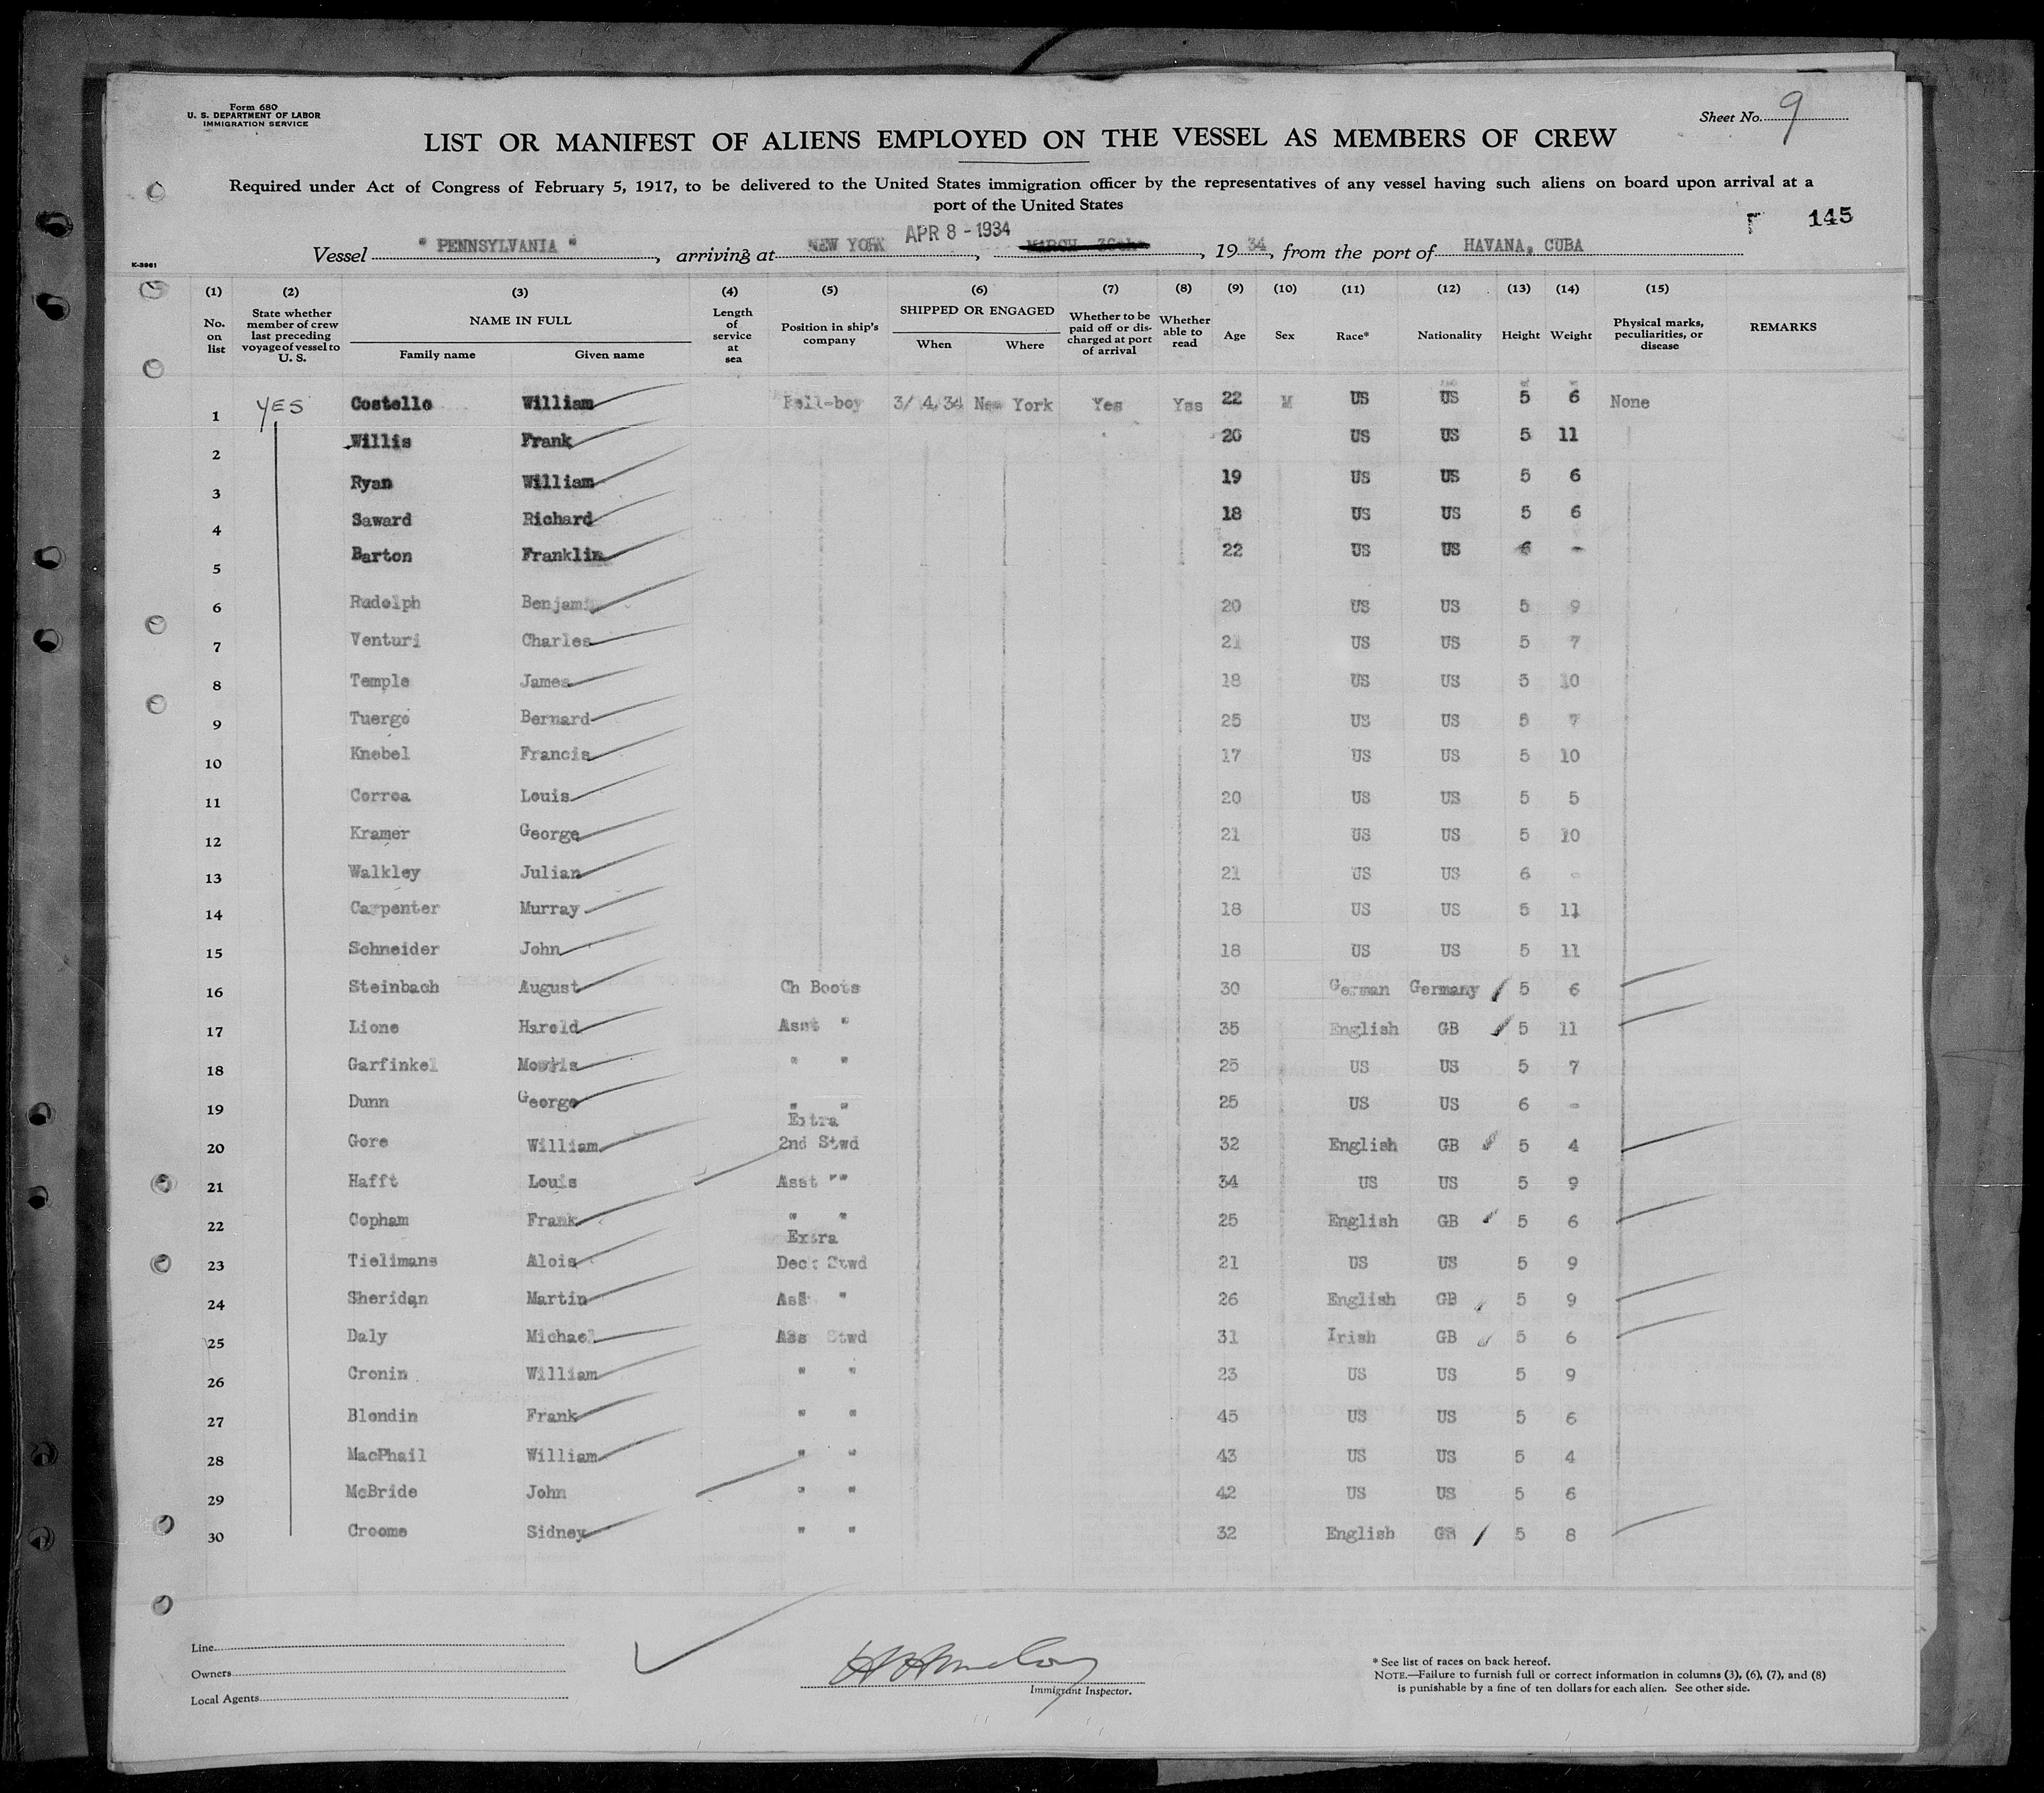 Form 680
U. S. DEPARTMENT OF LABOR
IMMIGRATION SERVICE
Sheet No. 9
LIST OR MANIFEST OF ALIENS EMPLOYED ON THE VESSEL AS MEMBERS OF CREW
Required under Act of Congress of February 5, 1917, to be delivered to the United States immigration officer by the representatives of any vessel having such aliens on board upon arrival at a
port of the United States
145
Vessel " PENNSYLVANIA ", arriving at NEW YORK APR 8 - 1934, MARCH 30th, 1934, from the port of HAVANA, CUBA
K-3961
(1) (2) (3) (4) (5) (6) (7) (8) (9) (10) (11) (12) (13) (14) (15)
No. on list
State whether member of crew last preceding voyage of vessel to U. S.
NAME IN FULL
Family name Given name
Length of service at sea
Position in ship's company
SHIPPED OR ENGAGED
When Where
Whether to be paid off or discharged at port of arrival
Whether able to read
Age
Sex
Race*
Nationality
Height
Weight
Physical marks, peculiarities, or disease
REMARKS
1 YES Costello William Bell-boy 3/ 4/34 New York Yes Yes 22 M US US 5 6 None
2 Willis Frank 20 US US 5 11
3 Ryan William 19 US US 5 6
4 Saward Richard 18 US US 5 6
5 Barton Franklin 22 US US 6 -
6 Rudolph Benjami 20 US US 5 9
7 Venturi Charles 21 US US 5 7
8 Temple James 18 US US 5 10
9 Tuergo Bernard 25 US US 5 7
10 Knebel Francis 17 US US 5 10
11 Correa Louis 20 US US 5 5
12 Kramer George 21 US US 5 10
13 Walkley Julian 21 US US 6 -
14 Carpenter Murray 18 US US 5 11
15 Schneider John 18 US US 5 11
16 Steinbach August Ch Boots 30 German Germany 5 6
17 Lione Harold Asst " 35 English GB 5 11
18 Garfinkel Morris " " 25 US US 5 7
19 Dunn George " " 25 US US 6 -
Extra
20 Gore William 2nd Stwd 32 English GB 5 4
21 Hafft Louis Asst "" 34 US US 5 9
22 Copham Frank " " 25 English GB 5 6
Extra
23 Tielimans Alois Deck Stwd 21 US US 5 9
24 Sheridan Martin Ass " 26 English GB 5 9
25 Daly Michael Ass Stwd 31 Irish GB 5 6
26 Cronin William " " 23 US US 5 9
27 Blondin Frank " " 45 US US 5 6
28 MacPhail William " " 43 US US 5 4
29 McBride John " " 42 US US 5 6
30 Croome Sidney " " 32 English GB 5 8
Line
Owners
Local Agents
Immigrant Inspector.
* See list of races on back hereof.
NOTE.—Failure to furnish full or correct information in columns (3), (6), (7), and (8)
is punishable by a fine of ten dollars for each alien. See other side.